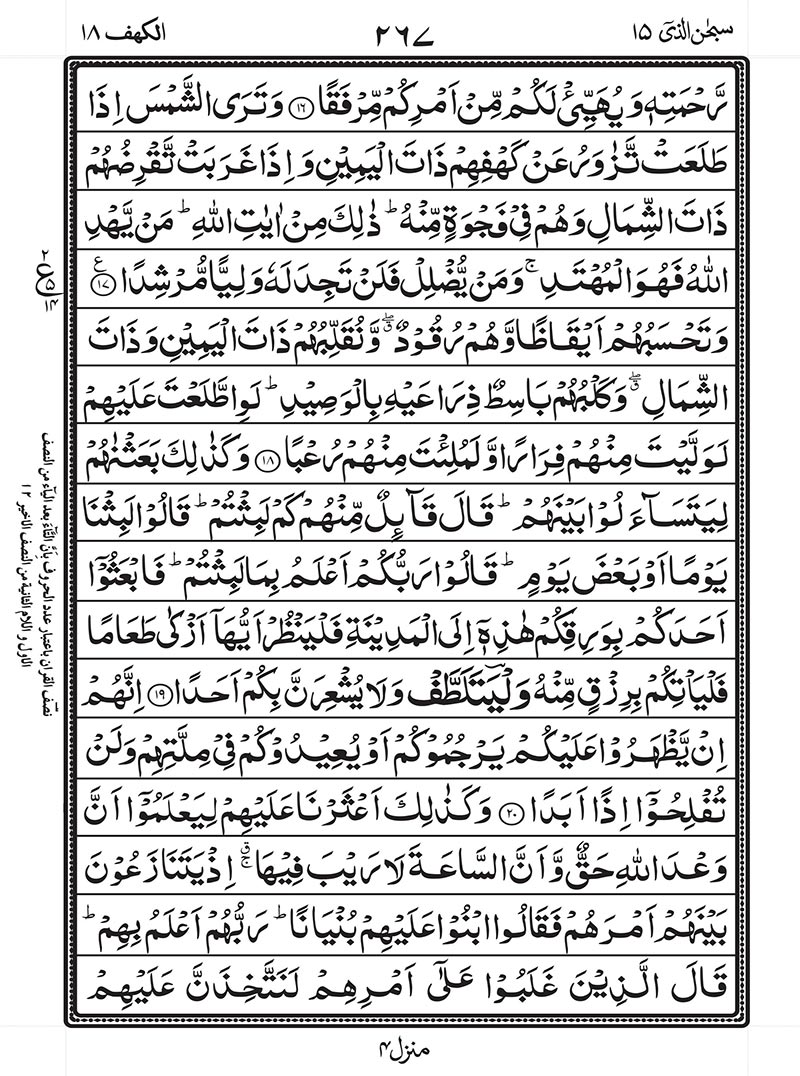 سبحٰن الذیٓ ۱۵
۲۶۷
الکهف ۱۸
رَّحْمَتِهٖ وَيُهَيِّئْ لَكُمْ مِّنْ اَمْرِكُمْ مِّرْفَقًا ۝۱۶ وَتَرَى الشَّمْسَ اِذَا
طَلَعَتْ تَّزٰوَرُ عَنْ كَهْفِهِمْ ذَاتَ الْيَمِيْنِ وَاِذَا غَرَبَتْ تَّقْرِضُهُمْ
ذَاتَ الشِّمَالِ وَهُمْ فِيْ فَجْوَةٍ مِّنْهُ ؕ ذٰلِكَ مِنْ اٰيٰتِ اللّٰهِ ؕ مَنْ يَّهْدِ
اللّٰهُ فَهُوَ الْمُهْتَدِ ۚ وَمَنْ يُّضْلِلْ فَلَنْ تَجِدَ لَهٗ وَلِيًّا مُّرْشِدًا ۝۱۷ ع
وَتَحْسَبُهُمْ اَيْقَاظًا وَّهُمْ رُقُوْدٌ ۖق وَّنُقَلِّبُهُمْ ذَاتَ الْيَمِيْنِ وَذَاتَ
الشِّمَالِ ۖق وَكَلْبُهُمْ بَاسِطٌ ذِرَاعَيْهِ بِالْوَصِيْدِ ؕ لَوِ اطَّلَعْتَ عَلَيْهِمْ
لَوَلَّيْتَ مِنْهُمْ فِرَارًا وَّلَمُلِئْتَ مِنْهُمْ رُعْبًا ۝۱۸ وَكَذٰلِكَ بَعَثْنٰهُمْ
لِيَتَسَآءَلُوْا بَيْنَهُمْ ؕ قَالَ قَآئِلٌ مِّنْهُمْ كَمْ لَبِثْتُمْ ؕ قَالُوْا لَبِثْنَا
يَوْمًا اَوْ بَعْضَ يَوْمٍ ؕ قَالُوْا رَبُّكُمْ اَعْلَمُ بِمَا لَبِثْتُمْ ؕ فَابْعَثُوْٓا
اَحَدَكُمْ بِوَرِقِكُمْ هٰذِهٖٓ اِلَى الْمَدِيْنَةِ فَلْيَنْظُرْ اَيُّهَآ اَزْكٰى طَعَامًا
فَلْيَاْتِكُمْ بِرِزْقٍ مِّنْهُ وَلْيَتَلَطَّفْ وَلَا يُشْعِرَنَّ بِكُمْ اَحَدًا ۝۱۹ اِنَّهُمْ
اِنْ يَّظْهَرُوْا عَلَيْكُمْ يَرْجُمُوْكُمْ اَوْ يُعِيْدُوْكُمْ فِيْ مِلَّتِهِمْ وَلَنْ
تُفْلِحُوْٓا اِذًا اَبَدًا ۝۲۰ وَكَذٰلِكَ اَعْثَرْنَا عَلَيْهِمْ لِيَعْلَمُوْٓا اَنَّ
وَعْدَ اللّٰهِ حَقٌّ وَّاَنَّ السَّاعَةَ لَا رَيْبَ فِيْهَا ۚق اِذْ يَتَنَازَعُوْنَ
بَيْنَهُمْ اَمْرَهُمْ فَقَالُوا ابْنُوْا عَلَيْهِمْ بُنْيَانًا ؕ رَبُّهُمْ اَعْلَمُ بِهِمْ ؕ
قَالَ الَّذِيْنَ غَلَبُوْا عَلٰٓى اَمْرِهِمْ لَنَتَّخِذَنَّ عَلَيْهِمْ
۲
ع ۵
۱۴
نصف القران باعتبار عدد الحروف بانّ التّاءَ بعد الیاء من النصف
الاول و اللام الثانیة من النصف الاخیر ۱۲
منزل ۴